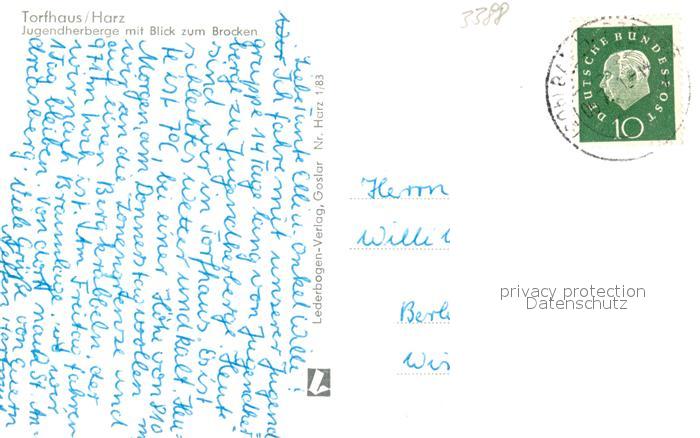 Torfhaus/Harz
Jugendherberge mit Blick zum Brocken
3388
Liebe Tante Elli u. Onkel Willi!
Ich fahre mit unserer Jugend
gruppe 14 Tage lang von Jugendher
berg zu Jugendherberge. Heute
sind wir in Torfhaus. Es ist
schlechtes Wetter und kalt. Heu-
te ist 7°C, bei einer Höhe von 810 m.
Morgen, am Donnerstag wollen
wir an die Zonengrenze und
auf einen Berg klettern, der
971 m hoch ist. Am Freitag fahren
wir nach Braunlage, wo wir
1 Tag bleiben. Von dort nach St. An-
dreasberg. Viele Grüße von Eurem
Hartmut
Lederbogen-Verlag, Goslar Nr. Harz 1/83
DEUTSCHE BUNDESPOST
10
Herrn
Willi
Berl
Wis
privacy protection
Datenschutz